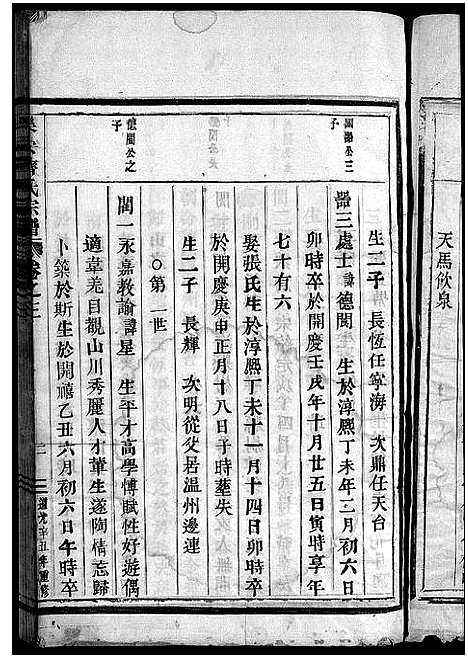 天馬飲泉
生二子 長恆任寧海 次鼎任天台
公三
子
器三處士諱德閎 生於淳熙丁未年二月初六日
卯時卒於開慶壬戌年十月廿五日寅時享年
七十有六
娶張氏生於淳熙丁未十一月十四日卯時卒
於開慶庚申正月十八日子時塟失
生二子 長輝 次明從父居温州邊連
○第一世
德閎公之
子
閎一永嘉教諭諱星 生平才高學博賦性好遊偶
適韋羌目覩山川秀麗人才萃生遂陶情忘歸
卜築於斯生於開禧乙丑六月初六日午時卒
氏宗譜 卷之
二
道光辛丑年重修